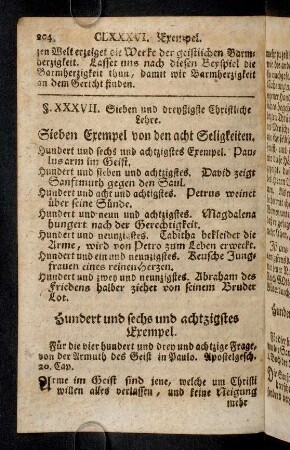 204. CLXXXVI. Exempel.
zen Welt erzeiget die Werke der geistlichen Barm-
herzigkeit. Lasset uns nach diesen Beyspiel die
Barmherzigkeit thun, damit wir Barmherzigkeit
an dem Gericht finden.
§. XXXVII. Sieben und dreyßigste Christliche
Lehre.
Sieben Exempel von den acht Seligkeiten.
Hundert und sechs und achtzigstes Exempel. Pau-
lus arm im Geist.
Hundert und sieben und achtzigstes. David zeigt
Sanftmuth gegen den Saul.
Hundert und acht und achtigstes. Petrus weinet
über seine Sünde.
Hundert und neun und achtzigstes. Magdalena
hungert nach der Gerechtigkeit.
Hundert und neunzigstes. Tabitha bekleidet die
Arme, wird von Petro zum Leben erweckt.
Hundert und ein und neunzigstes. Keusche Jung-
frauen eines reinen Herzen.
Hundert und zwey und neunzigstes. Abraham des
Friedens halber ziehet von seinem Bruder
Lot.
Hundert und sechs und achtzigstes
Exempel.
Für die vier hundert und drey und achtzige Frage,
von der Armuth des Geist in Paulo. Apostelgesch.
20. Cap.
Arme im Geist sind jene, welche um Christi
willen alles verlassen, und keine Neigung
mehr